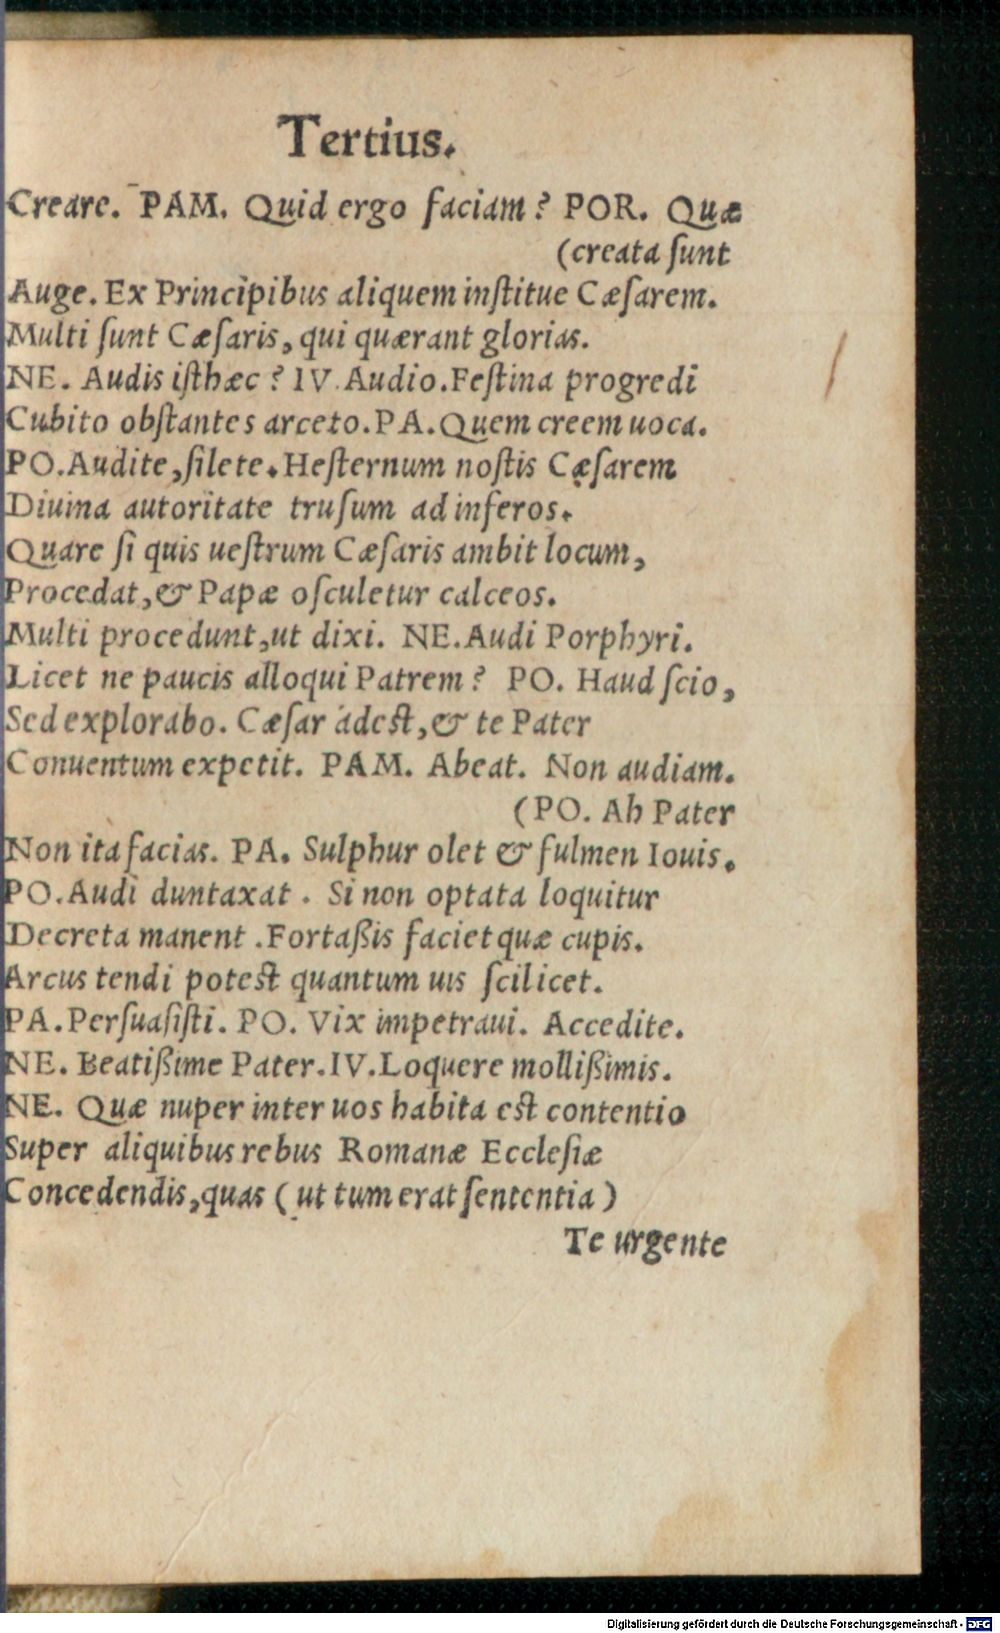 Tertius.
Creare. PAM. Quid ergo faciam? POR. Quæ
(creata ſunt
Auge. Ex Principibus aliquem inſtitue Cæſarem.
Multi ſunt Cæſaris, qui quærant glorias.
NE. Audis iſthæc? IV. Audio. Feſtina progredi
Cubito obſtantes arceto. PA. Quem creem uoca.
PO. Audite, ſilete. Heſternum noſtis Cæſarem
Diuina autoritate truſum ad inferos.
Quare ſi quis ueſtrum Cæſaris ambit locum,
Procedat, & Papæ oſculetur calceos.
Multi procedunt, ut dixi. NE. Audi Porphyri.
Licet ne paucis alloqui Patrem? PO. Haud ſcio,
Sed explorabo. Cæſar adeſt, & te Pater
Conuentum expetit. PAM. Abeat. Non audiam.
(PO. Ah Pater
Non ita facias. PA. Sulphur olet & fulmen Iouis.
PO. Audi duntaxat. Si non optata loquitur
Decreta manent. Fortaßis faciet quæ cupis.
Arcus tendi poteſt quantum uis ſcilicet.
PA. Perſuaſiſti. PO. Vix impetraui. Accedite.
NE. Beatißime Pater. IV. Loquere mollißimis.
NE. Quæ nuper inter uos habita eſt contentio
Super aliquibus rebus Romanæ Eccleſiæ
Concedendis, quas (ut tum erat ſententia)
Te urgente
Digitalisierung gefördert durch die Deutsche Forschungsgemeinschaft - DFG